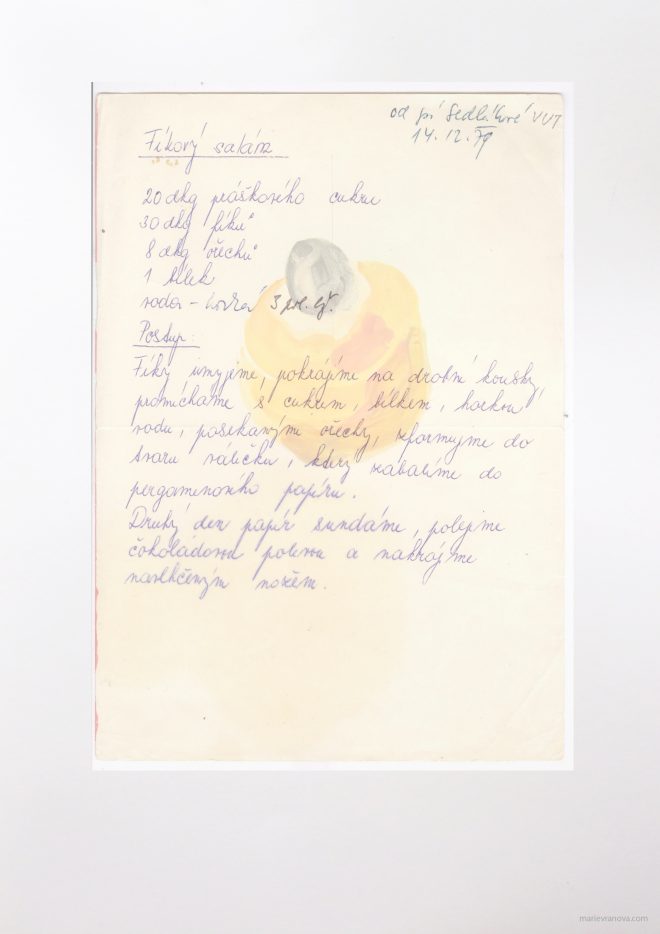 od pí Sedlákové VUT
14. 12. 79
Fíkový salám
20 dkg práškového cukru
30 dkg fíků
8 dkg ořechů
1 bílek
voda – horká 3 pol. lž.
Postup:
Fíky umyjeme, pokrájíme na drobné kousky,
promícháme s cukrem, bílkem, horkou
vodou, posekanými ořechy, zformujme do
tvaru válečku, který zabalíme do
pergamenového papíru.
Druhý den papír sundáme, polejme
čokoládovou polevou a nakrájíme
navlhčeným nožem.
marievranova.com